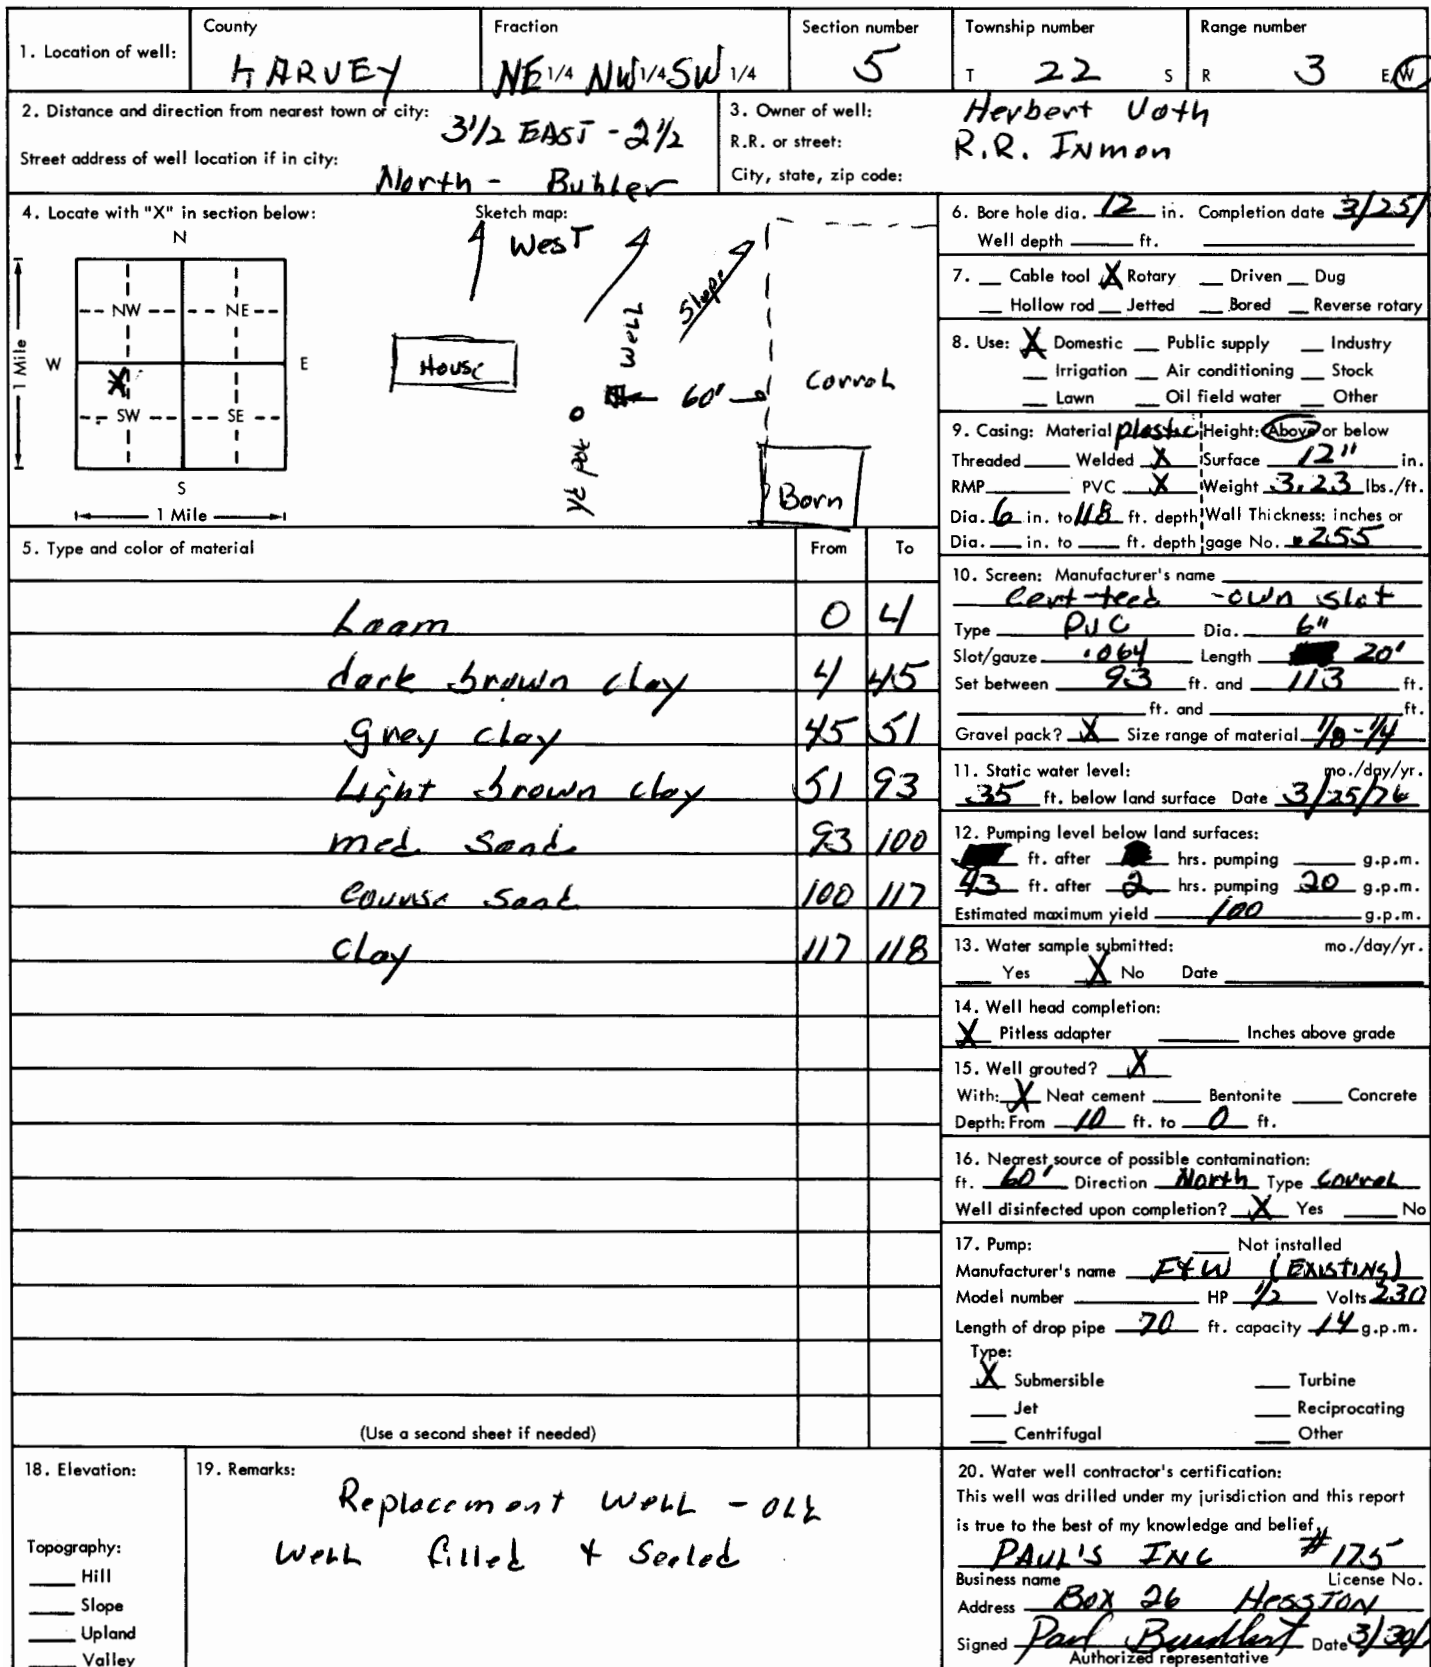 1. Location of well:
County
HARVEY
Fraction
NE 1/4 NW 1/4 SW 1/4
Section number
5
Township number
T 22 S
Range number
R 3 E/W
2. Distance and direction from nearest town or city:
3 1/2 EAST - 2 1/2
Street address of well location if in city:
North - Buhler
3. Owner of well:
R.R. or street:
City, state, zip code:
Herbert Voth
R.R. Inmon
4. Locate with "X" in section below:
N
NW NE
W E
X
SW SE
S
1 Mile
1 Mile
Sketch map:
West
Slope
Well
House
60'
Corral
Yd pole
Barn
5. Type and color of material From To
Loam 0 4
dark brown clay 4 45
grey clay 45 51
Light brown clay 51 93
med. sand 93 100
course sand 100 117
clay 117 118
(Use a second sheet if needed)
6. Bore hole dia. 12 in. Completion date 3/25/
Well depth ____ ft.
7. __ Cable tool X Rotary __ Driven __ Dug
__ Hollow rod __ Jetted __ Bored __ Reverse rotary
8. Use: X Domestic __ Public supply __ Industry
__ Irrigation __ Air conditioning __ Stock
__ Lawn __ Oil field water __ Other
9. Casing: Material plastic Height: Above or below
Threaded ____ Welded X Surface 12" in.
RMP ____ PVC X Weight 3.23 lbs./ft.
Dia. 6 in. to 118 ft. depth Wall Thickness: inches or
Dia. __ in. to __ ft. depth gage No. .255
10. Screen: Manufacturer's name
Cert-teed -own slot
Type PVC Dia. 6"
Slot/gauze .064 Length 20'
Set between 93 ft. and 113 ft.
____ ft. and ____ ft.
Gravel pack? X Size range of material 1/8-1/4
11. Static water level: mo./day/yr.
35 ft. below land surface Date 3/25/76
12. Pumping level below land surfaces:
ft. after hrs. pumping ____ g.p.m.
43 ft. after 2 hrs. pumping 20 g.p.m.
Estimated maximum yield 100 g.p.m.
13. Water sample submitted: mo./day/yr.
__ Yes X No Date ____
14. Well head completion:
X Pitless adapter ____ Inches above grade
15. Well grouted? X
With: X Neat cement ____ Bentonite ____ Concrete
Depth: From 10 ft. to 0 ft.
16. Nearest source of possible contamination:
ft. 60' Direction North Type Corral
Well disinfected upon completion? X Yes ____ No
17. Pump: ____ Not installed
Manufacturer's name F&W (EXISTING)
Model number ____ HP 1/2 Volts 230
Length of drop pipe 70 ft. capacity 14 g.p.m.
Type:
X Submersible __ Turbine
__ Jet __ Reciprocating
__ Centrifugal __ Other
18. Elevation:
Topography:
__ Hill
__ Slope
__ Upland
__ Valley
19. Remarks:
Replacement Well - old
Well filled & Sealed
20. Water well contractor's certification:
This well was drilled under my jurisdiction and this report
is true to the best of my knowledge and belief.
PAUL'S INC #175
Business name License No.
Address Box 26 HESSTON
Signed Paul Date 3/30/
Authorized representative